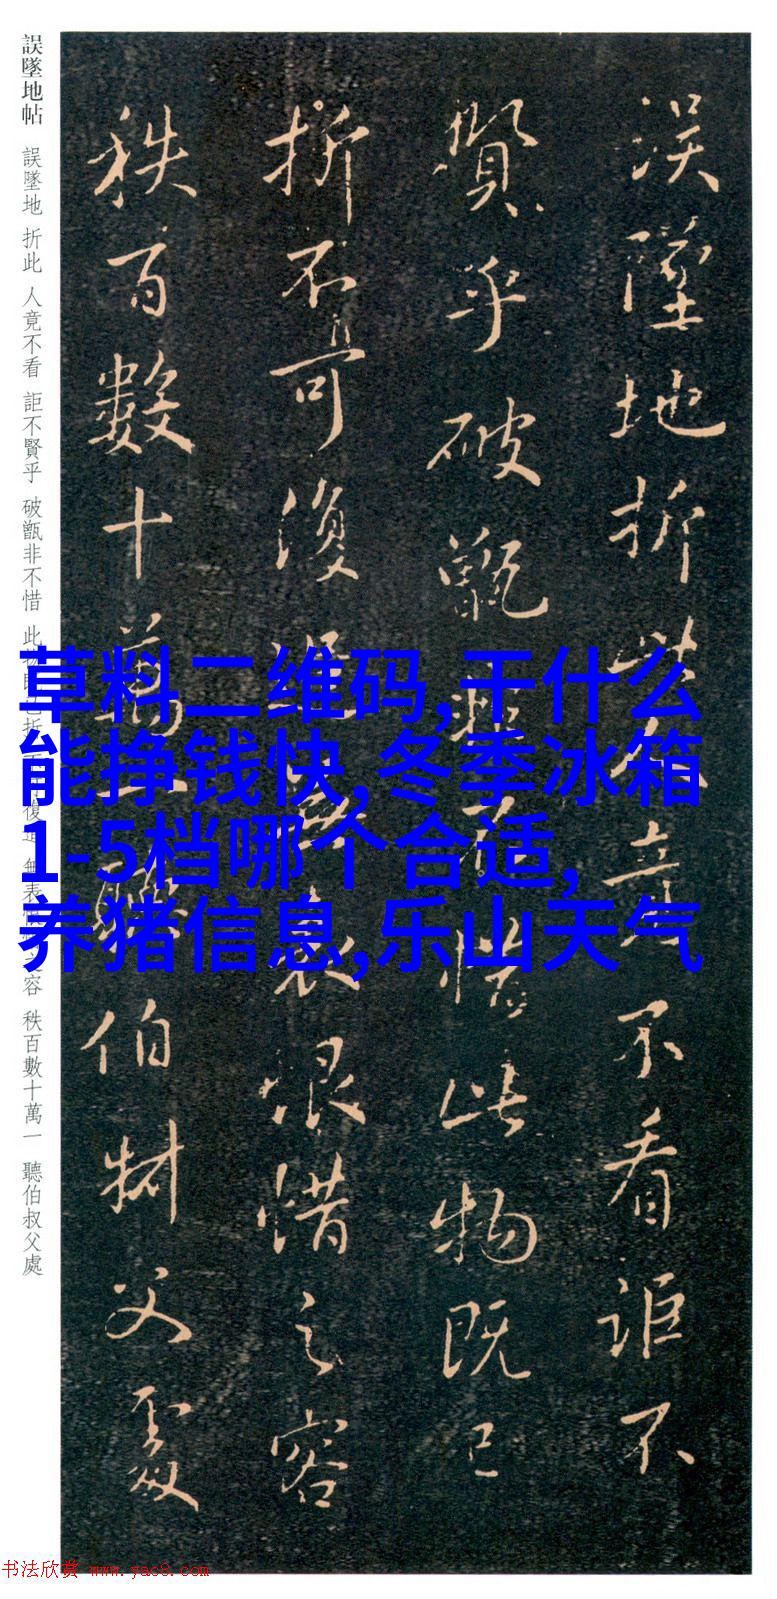 誤墜地折此人竟不看詎不
賢乎破甑非不惜此物既已
折不可復追無表恨惜之容
秩百數十萬一聽伯叔父處
誤墜地帖 誤墜地 折此 人竟不看 詎不賢乎 破甑非不惜 此物既已折 不可復追 無表恨惜之容 秩百數十萬一 聽伯叔父處
草料二维码,干什么
能挣钱快,冬季冰箱
1-5档哪个合适,
养猪信息,乐山天气
书法欣赏 www.yac8.com